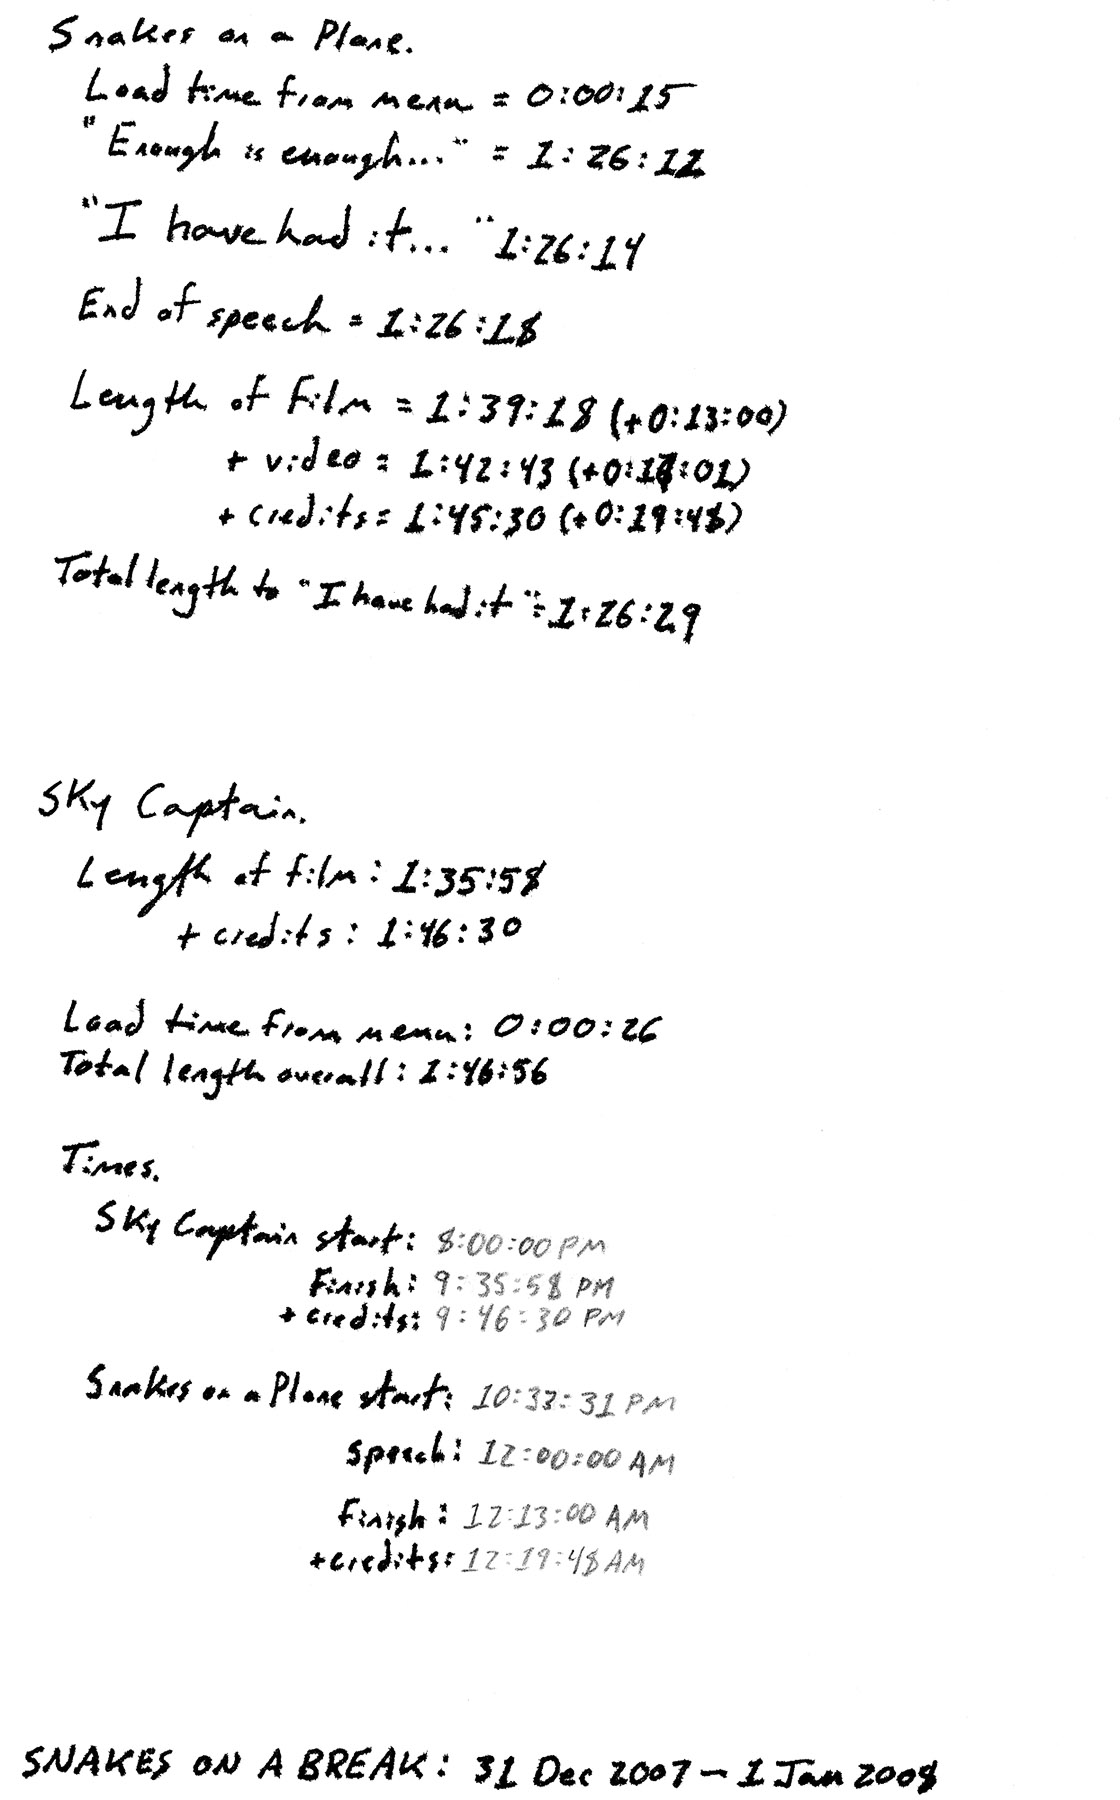 Snakes on a Plane.
Load time from menu = 0:00:15
"Enough is enough..." = 1:26:12
"I have had it..." 1:26:14
End of speech = 1:26:18
Length of film = 1:39:18 (+0:13:00)
+ video = 1:42:43 (+0:17:01)
+ credits = 1:45:30 (+0:19:48)
Total length to "I have had it" = 1:26:29
Sky Captain.
Length of film: 1:35:58
+ credits: 1:46:30
Load time from menu: 0:00:26
Total length overall: 1:46:56
Times.
Sky Captain start: 8:00:00 PM
Finish: 9:35:58 PM
+ credits: 9:46:30 PM
Snakes on a Plane start: 10:33:31 PM
speech: 12:00:00 AM
Finish: 12:13:00 AM
+credits: 12:19:48 AM
SNAKES ON A BREAK: 31 Dec 2007 - 1 Jan 2008